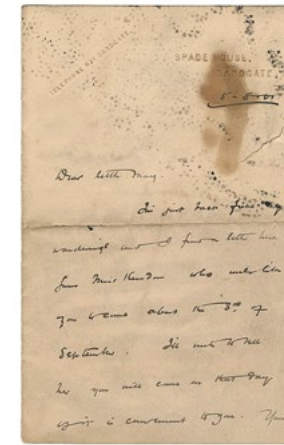 TELEPHONE SANDGATE.
SPADE HOUSE,
SANDGATE.
Dear little May.
I'm just back from my
wanderings and I find a letter here
from Miss who would like
you to come about the 3rd of
September. I'll write to tell
her you will come on that day
if it is convenient to you.